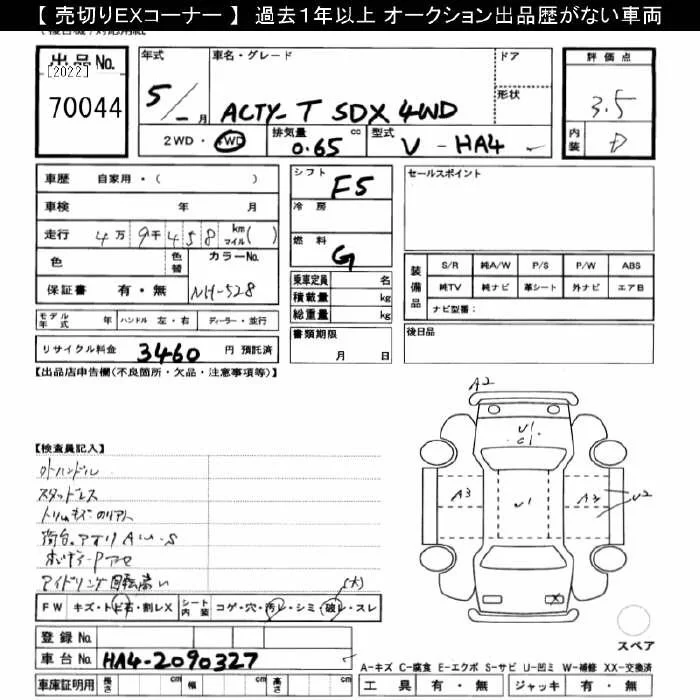 【 売切りEXコーナー 】 過去1年以上 オークション出品歴がない車両
出品No.
[2022]
70044
年式
5/- 月
車名・グレード
ACTY-T SDX 4WD
ドア
形状
2WD・4WD
排気量
0.65 cc
型式
V - HA4
評価点
3.5
内装
D
車歴 自家用・( )
車検 年 月
走行 4万 9千 4 5 8 km マイル ( )
色
色替
カラーNo.
NH-528
保証書 有・無
モデル年式 年 ハンドル 左・右 ディーラー・並行
リサイクル料金 3460 円 預託済
シフト
F5
冷房
燃料
G
乗車定員 名
積載量 kg
総重量 kg
書類期限
月 日
セールスポイント
装備品
S/R 純A/W P/S P/W ABS
純TV 純ナビ 革シート 外ナビ エアB
ナビ型番:
後日品
【出品店申告欄(不良箇所・欠品・注意事項等)】
【検査員記入】
外ハンドル
スタッドレス
荷台。アオリ A U S
ボディーPアセ
アイドリング回転高い
(大)
FW キズ・トビ石・割レX シート内装 コゲ・穴・汚レ・シミ・破レ・スレ
登録No.
車台No. HA4-2090327
車庫証明用 長さ cm 幅 cm 高さ cm
A2
U1
C1
A3
U1
A3
U2
X
スペア
A-キズ C-腐食 E-エクボ S-サビ U-凹ミ W-補修 XX-交換済
工具 有・無 ジャッキ 有・無